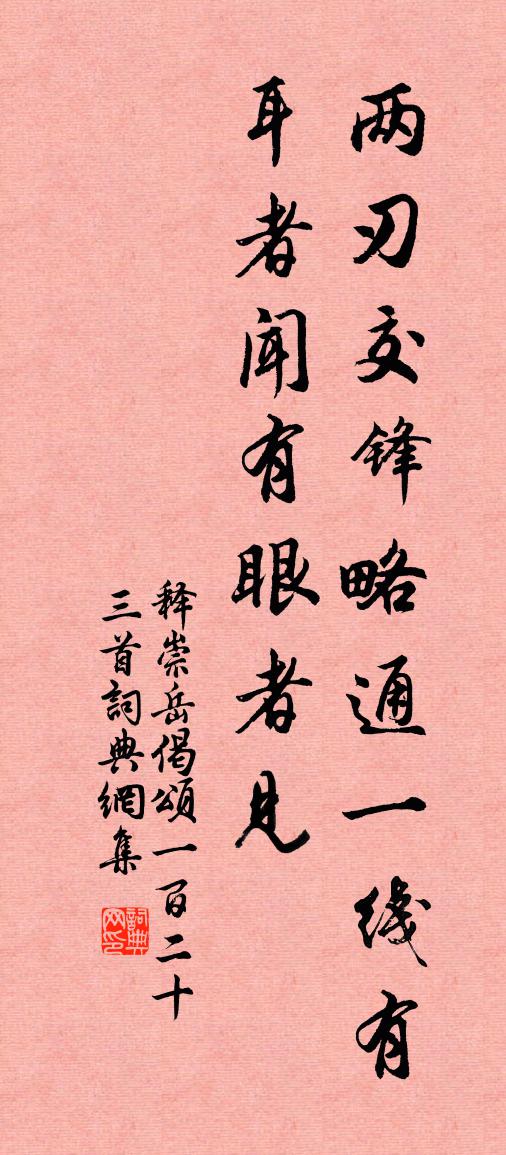 两刃交锋略通一线有
耳者闻有眼者见
释崇岳偈頌一百二十
三首詞典網集
詞典
网印